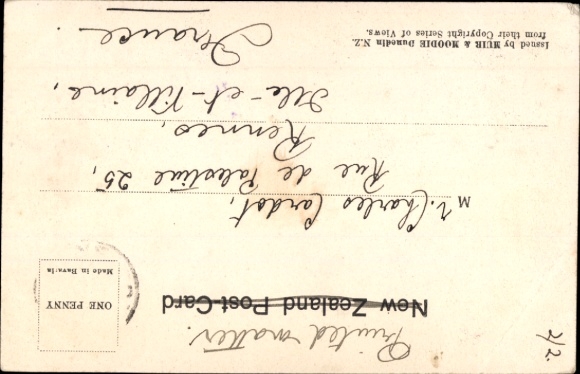 Printed matter.
New Zealand Post-Card
ONE PENNY
Made in Bavaria
M r. Charles Cardot,
Rue de Palestine 25,
Rennes,
Ille-et-Villaine,
France.
Issued by MUIR & MOODIE Dunedin N.Z.
from their Copyright Series of Views.
2/2.